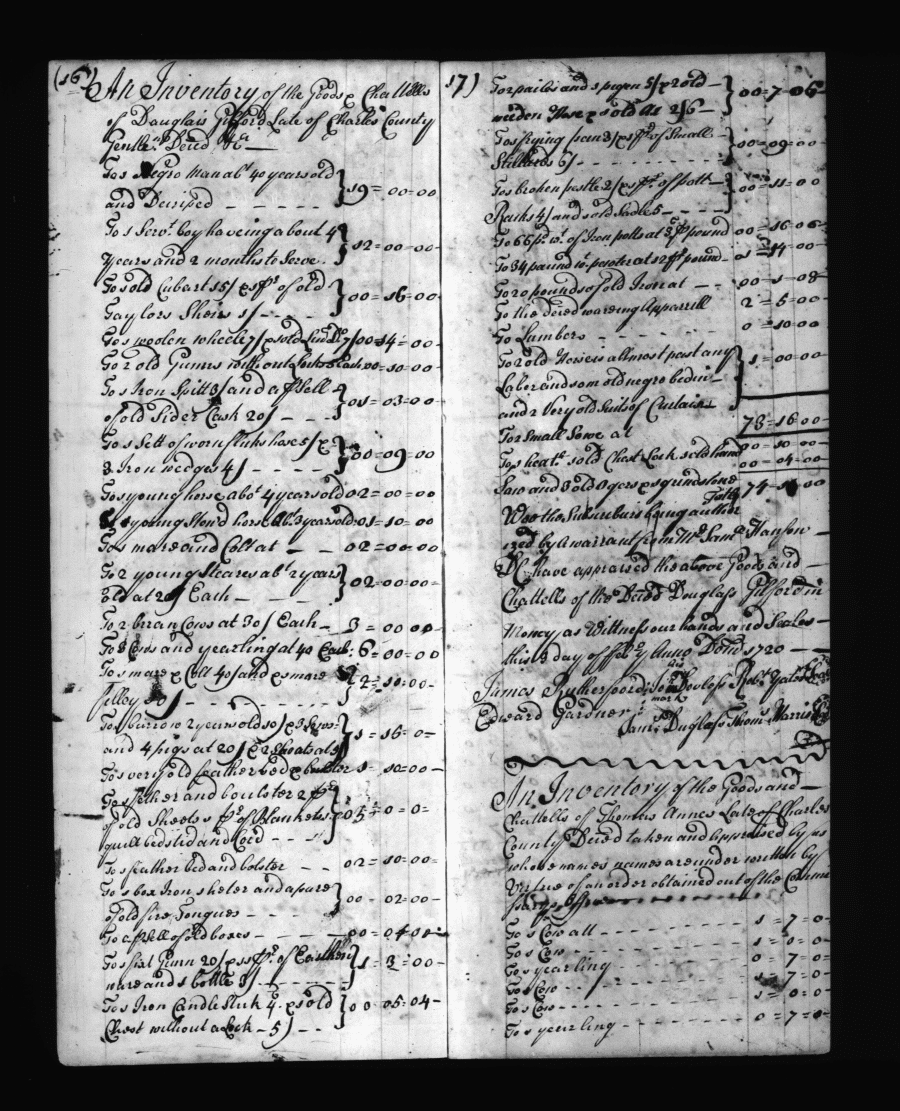 (16)
An Inventory of the Goods & Chattells
of Duglass Gifford Late of Charles County
Gentle: Deced &c
To 1 Negro Man abt 40 years old
and Decriped - - - - } 19 = 00 = 00
To 1 Servt boy haveing about 4
years and 2 months to Serve. } 12 = 00 = 00
To 1 old Cubart 15/ & 1 pr of old
Taylors Sheirs 1/ - - - } 00 = 16 = 00
To 1 woolen wheele 7/ & 1 old Do 7/ 00 = 14 = 00
To 2 old Gunns without Locks 00 = 10 = 00
To 1 Iron Spitt 3/ and a psell
of old Sider Cask 20/ - - } 01 = 03 = 00
To 1 Sett of worn hose 5/ &
3 Iron wedges 4/ - - - - } 00 = 09 = 00
To 1 young horse abot 4 years old 02 = 00 = 00
1 young Ston'd horse abt 3 years old 01 = 10 = 00
To 1 mare and Colt at - - 02 = 00 = 00
To 2 young Steares abt 2 years
old at 20/ Each - - - } 02 = 00 = 00
To 2 Cows at 30/ Each - 3 = 00 00
To 3 Cows and yearling at 40 Each 6 = 00 = 00
To 1 mare & Colt 40/ and 1 mare
filley 30/ - - - - - } = 10 = 00
To 1 burrow 2 years old 10/ & 3 Sows
and 4 pigs at 20/ & 2 Shoats at } 1 - 16 = 0 =
To 1 very old feather bed & boulster 1 - 10 = 00
To 1 fether and boulster 2 pr
of old Sheets 1 pr of Blankets
quilt bedstid and Cord - - } 05 = 0 = 0 =
To 1 feather bed and bolster - - 02 = 10 = 00 =
To 1 box Iron 1 heter and a pare
of old fire Tongues - - - - } 00 - 02 = 00 -
To a psell of old boxes - - - - 00 = 04 00
To 1 Gunn 20/ & 1 of Earthen
ware and 1 bottle 3/ - - - } 1 = 3 = 00 -
To 1 Iron Candlestick 4 & 1 old
Chest without a Lock - 5/ - - } 00 05 = 04 -
17)
To 2 pailes and 1 pigen 5/ & 2 old
wooden 2/6 - } 00 = 7 = 06
To 1 frying pan 3/ & 1 pr of Small
Stilliards 6/ - - - - - } 00 = 09 = 00
To 1 broken pestle 2/ & 1 pr of pott
Racks 4/ and 1 old Sadle 5 - - - } 00 = 11 = 00
To 66 pd wt of Iron potts at 3d p pound 00 = 16 = 06
To 34 pound wt pewter at 12d p pound - 01 = 14 = 00
To 20 pounds of old Iron at - - 00 = 1 - 08
To the deced wareing Apparrill 2 = 5 = 00
To Lumber - - - - - - 0 = 10 = 00
To 2 old Horses allmost past any
Labor and som old negro beding
and 2 Very old Suits of Curtains } 1 = 00 = 00
78 = 16 = 00
To 1 Small Sowe at 00 = 10 = 00
To 1 1 old Chest Lock 1 old hand
Saw and 3 old Agers & 1 grindstone 00 = 04 = 00
Totll 74 00
Wee the Subscribers being author
ized by A warrant from Mr Saml Hanson
DC have appraised the above Goods and
Chattells of the Deced Duglass Gifford in
Money as Wittness our hands and Seales
this day of Feby Anno Domi 1720
James Rutherford John his mark Dovloss Robt Yates
Edward Gardner Saml Duglass Thoms Harris
An Inventory of the Goods and
Chattells of Thomas Annes Late of Charles
County Deced taken and Appraised by us
whose names names are under written by
Virtue of an order obtained out of the Comme
sarys Office
To 1 Cow att - - - - 1 = 7 = 0
To 1 Cow - - - - 1 = 0 = 0
To 1 yearling - - - - 0 = 7 = 0
To 1 Cow - - - - 1 = 7 = 0
To 1 Cow - - - - 1 = 0 = 0
To 1 yearling - - - - 0 = 7 = 0